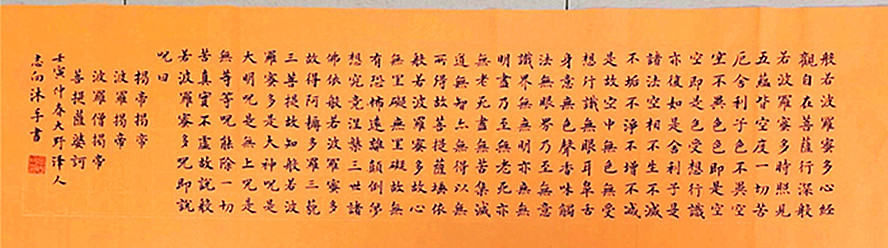 般若波羅蜜多心經
觀自在菩薩行深般
若波羅蜜多時照見
五蘊皆空度一切苦
厄舍利子色不異空
空不異色色即是空
空即是色受想行識
亦復如是舍利子是
諸法空相不生不滅
不垢不淨不增不減
是故空中無色無受
想行識無眼耳鼻舌
身意無色聲香味觸
法無眼界乃至無意
識界無無明亦無無
明盡乃至無老死亦
無老死盡無苦集滅
道無智亦無得以無
所得故菩提薩埵依
般若波羅蜜多故心
無罣礙無罣礙故無
有恐怖遠離顛倒夢
想究竟涅槃三世諸
佛依般若波羅蜜多
故得阿耨多羅三藐
三菩提故知般若波
羅蜜多是大神呪是
大明呪是無上呪是
無等等呪能除一切
苦真實不虛故說般
若波羅蜜多呪即說
呪曰
揭帝揭帝
波羅揭帝
波羅僧揭帝
菩提薩婆訶
壬寅仲春大野澤人
志向沐手書